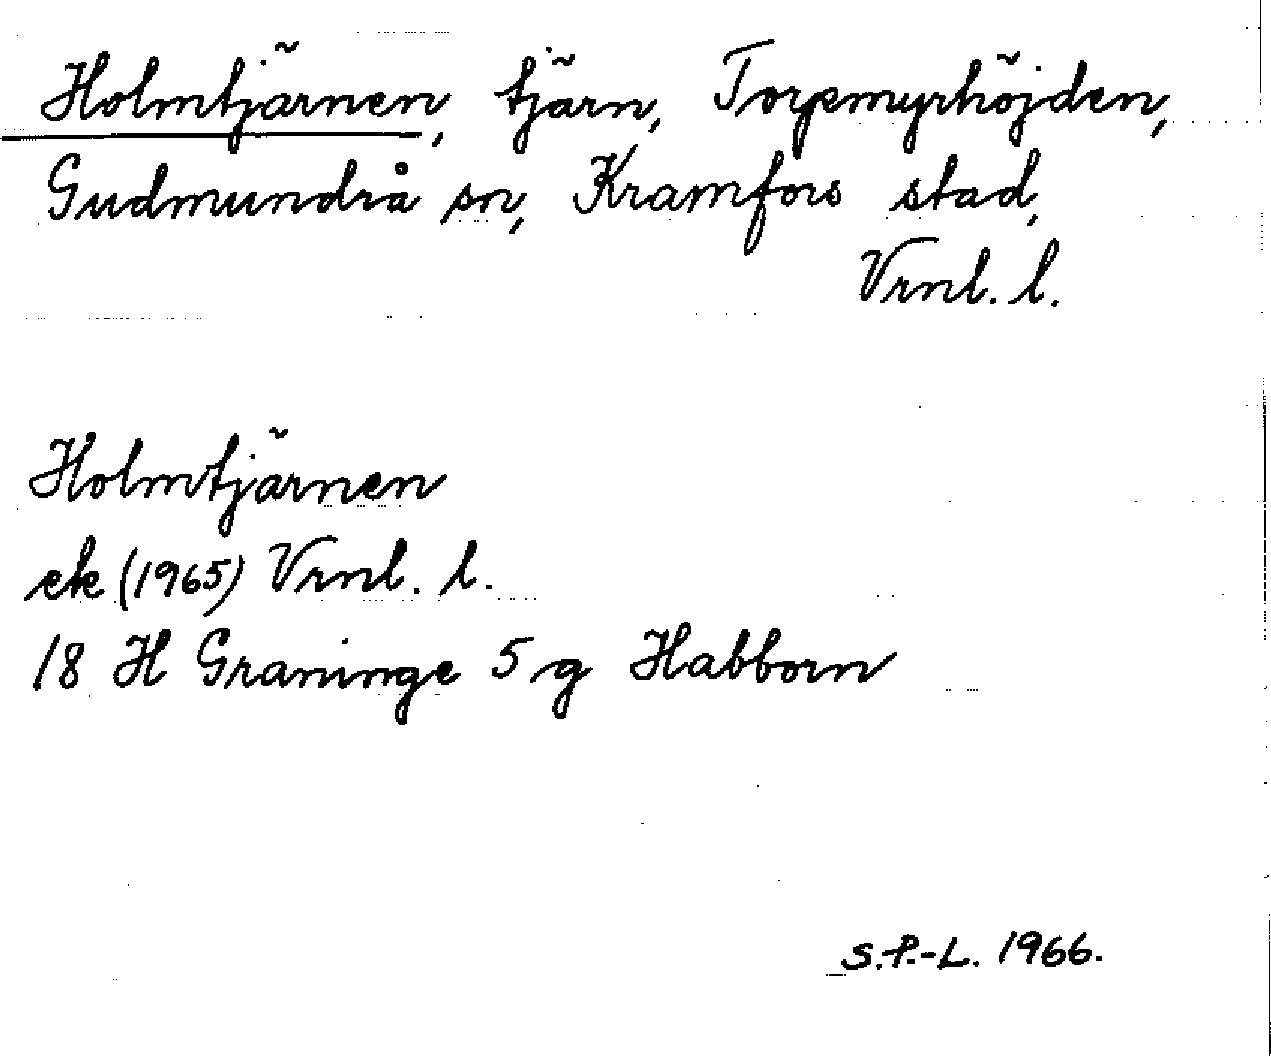 Holmtjärnen, tjärn, Torpmyrhöjden,
Gudmundrå sn, Kramfors stad,
Vrnl. l.
Holmtjärnen
ek (1965) Vrnl. l.
18 H Graninge 5 g Habborn
S.P.-L. 1966.